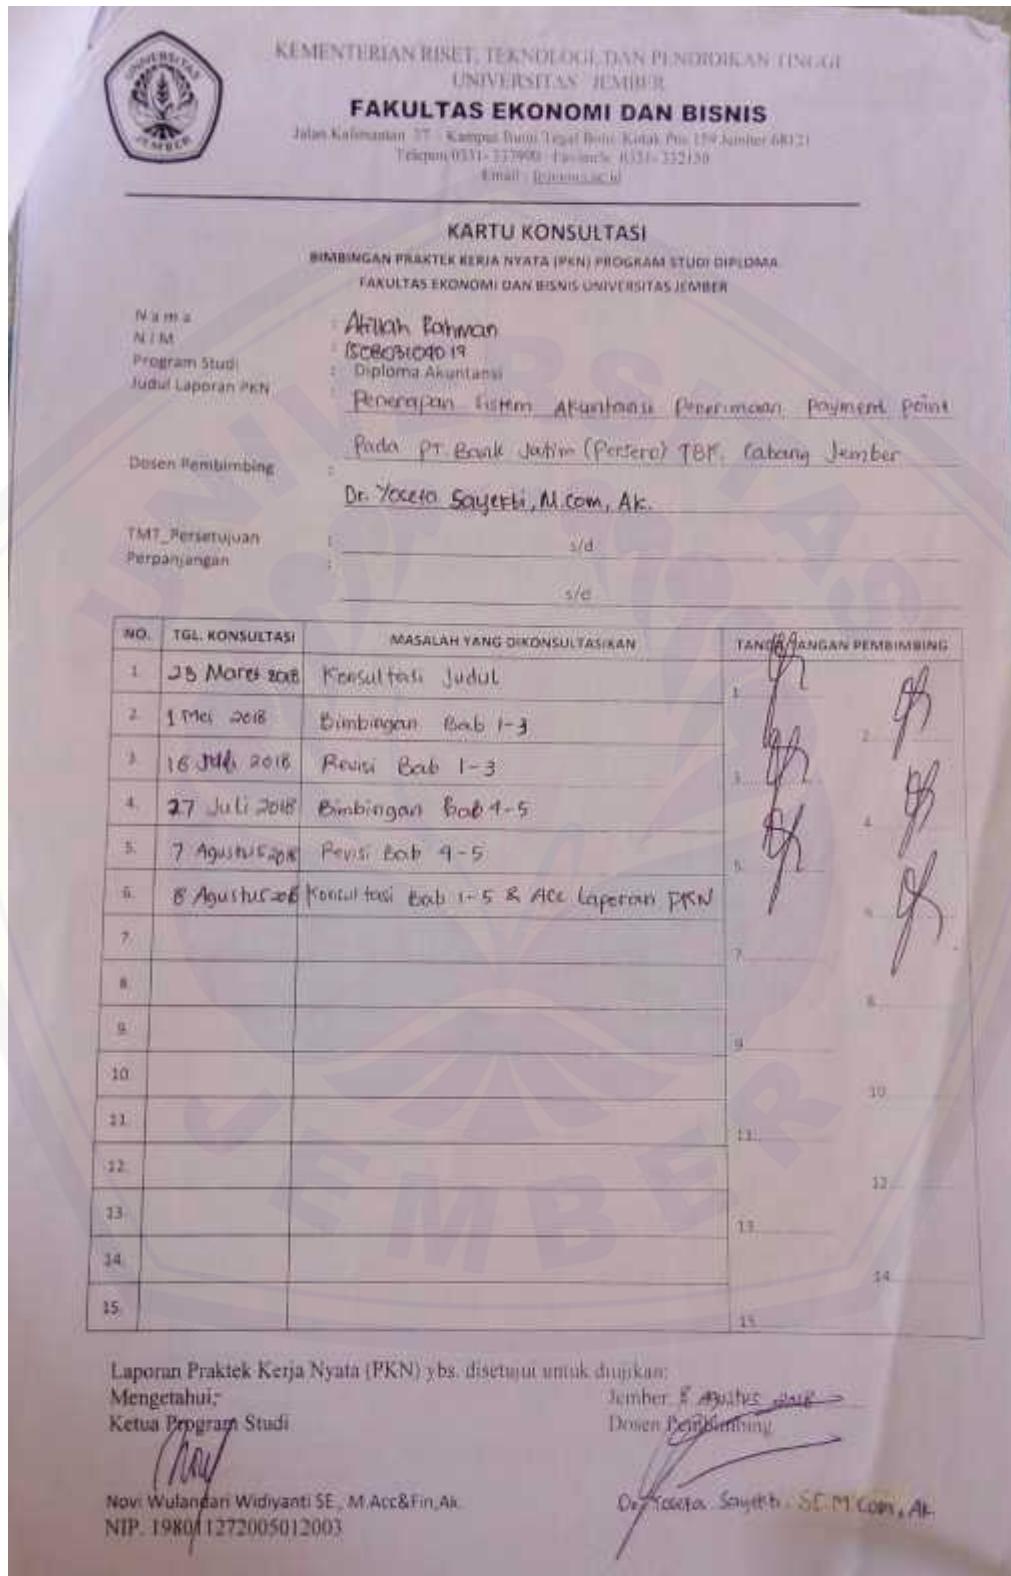 UNIVERSITAS
JEMBER
KEMENTERIAN RISET, TEKNOLOGI, DAN PENDIDIKAN TINGGI
UNIVERSITAS JEMBER
FAKULTAS EKONOMI DAN BISNIS
Jalan Kalimantan 37 - Kampus Bumi Tegal Boto Kotak Pos 159 Jember 68121
Telepon 0331- 337990 - Facsimile 0331- 332150
Email :
KARTU KONSULTASI
BIMBINGAN PRAKTEK KERJA NYATA (PKN) PROGRAM STUDI DIPLOMA
FAKULTAS EKONOMI DAN BISNIS UNIVERSITAS JEMBER
Nama : Atillah Rahman
NIM : 150803104019
Program Studi : Diploma Akuntansi
Judul Laporan PKN : Penerapan Sistem Akuntansi Penerimaan Payment Point
Pada PT. Bank Jatim (Persero) TBK. Cabang Jember
Dosen Pembimbing :
Dr. Yoseta Sayekti, M.Com, Ak.
TMT_Persetujuan : s/d
Perpanjangan :
s/d
NO. TGL. KONSULTASI MASALAH YANG DIKONSULTASIKAN TANDA TANGAN PEMBIMBING
1. 23 Maret 2018 Konsultasi Judul 1
2. 1 Mei 2018 Bimbingan Bab 1-3 2
3. 16 Juli 2018 Revisi Bab 1-3 3
4. 27 Juli 2018 Bimbingan Bab 4-5 4
5. 7 Agustus 2018 Revisi Bab 4-5 5
6. 8 Agustus 2018 Konsultasi Bab 1-5 & Acc Laporan PKN 6
7. 7
8. 8
9. 9
10. 10
11. 11
12. 12
13. 13
14. 14
15. 15
Laporan Praktek Kerja Nyata (PKN) ybs. disetujui untuk diujikan:
Mengetahui; Jember, 8 Agustus 2018
Ketua Program Studi Dosen Pembimbing
Novi Wulandari Widiyanti SE., M.Acc&Fin,Ak. Dr. Yoseta Sayekti. SE. M Com, Ak.
NIP. 198011272005012003
UNIVERSITAS
JEMBER